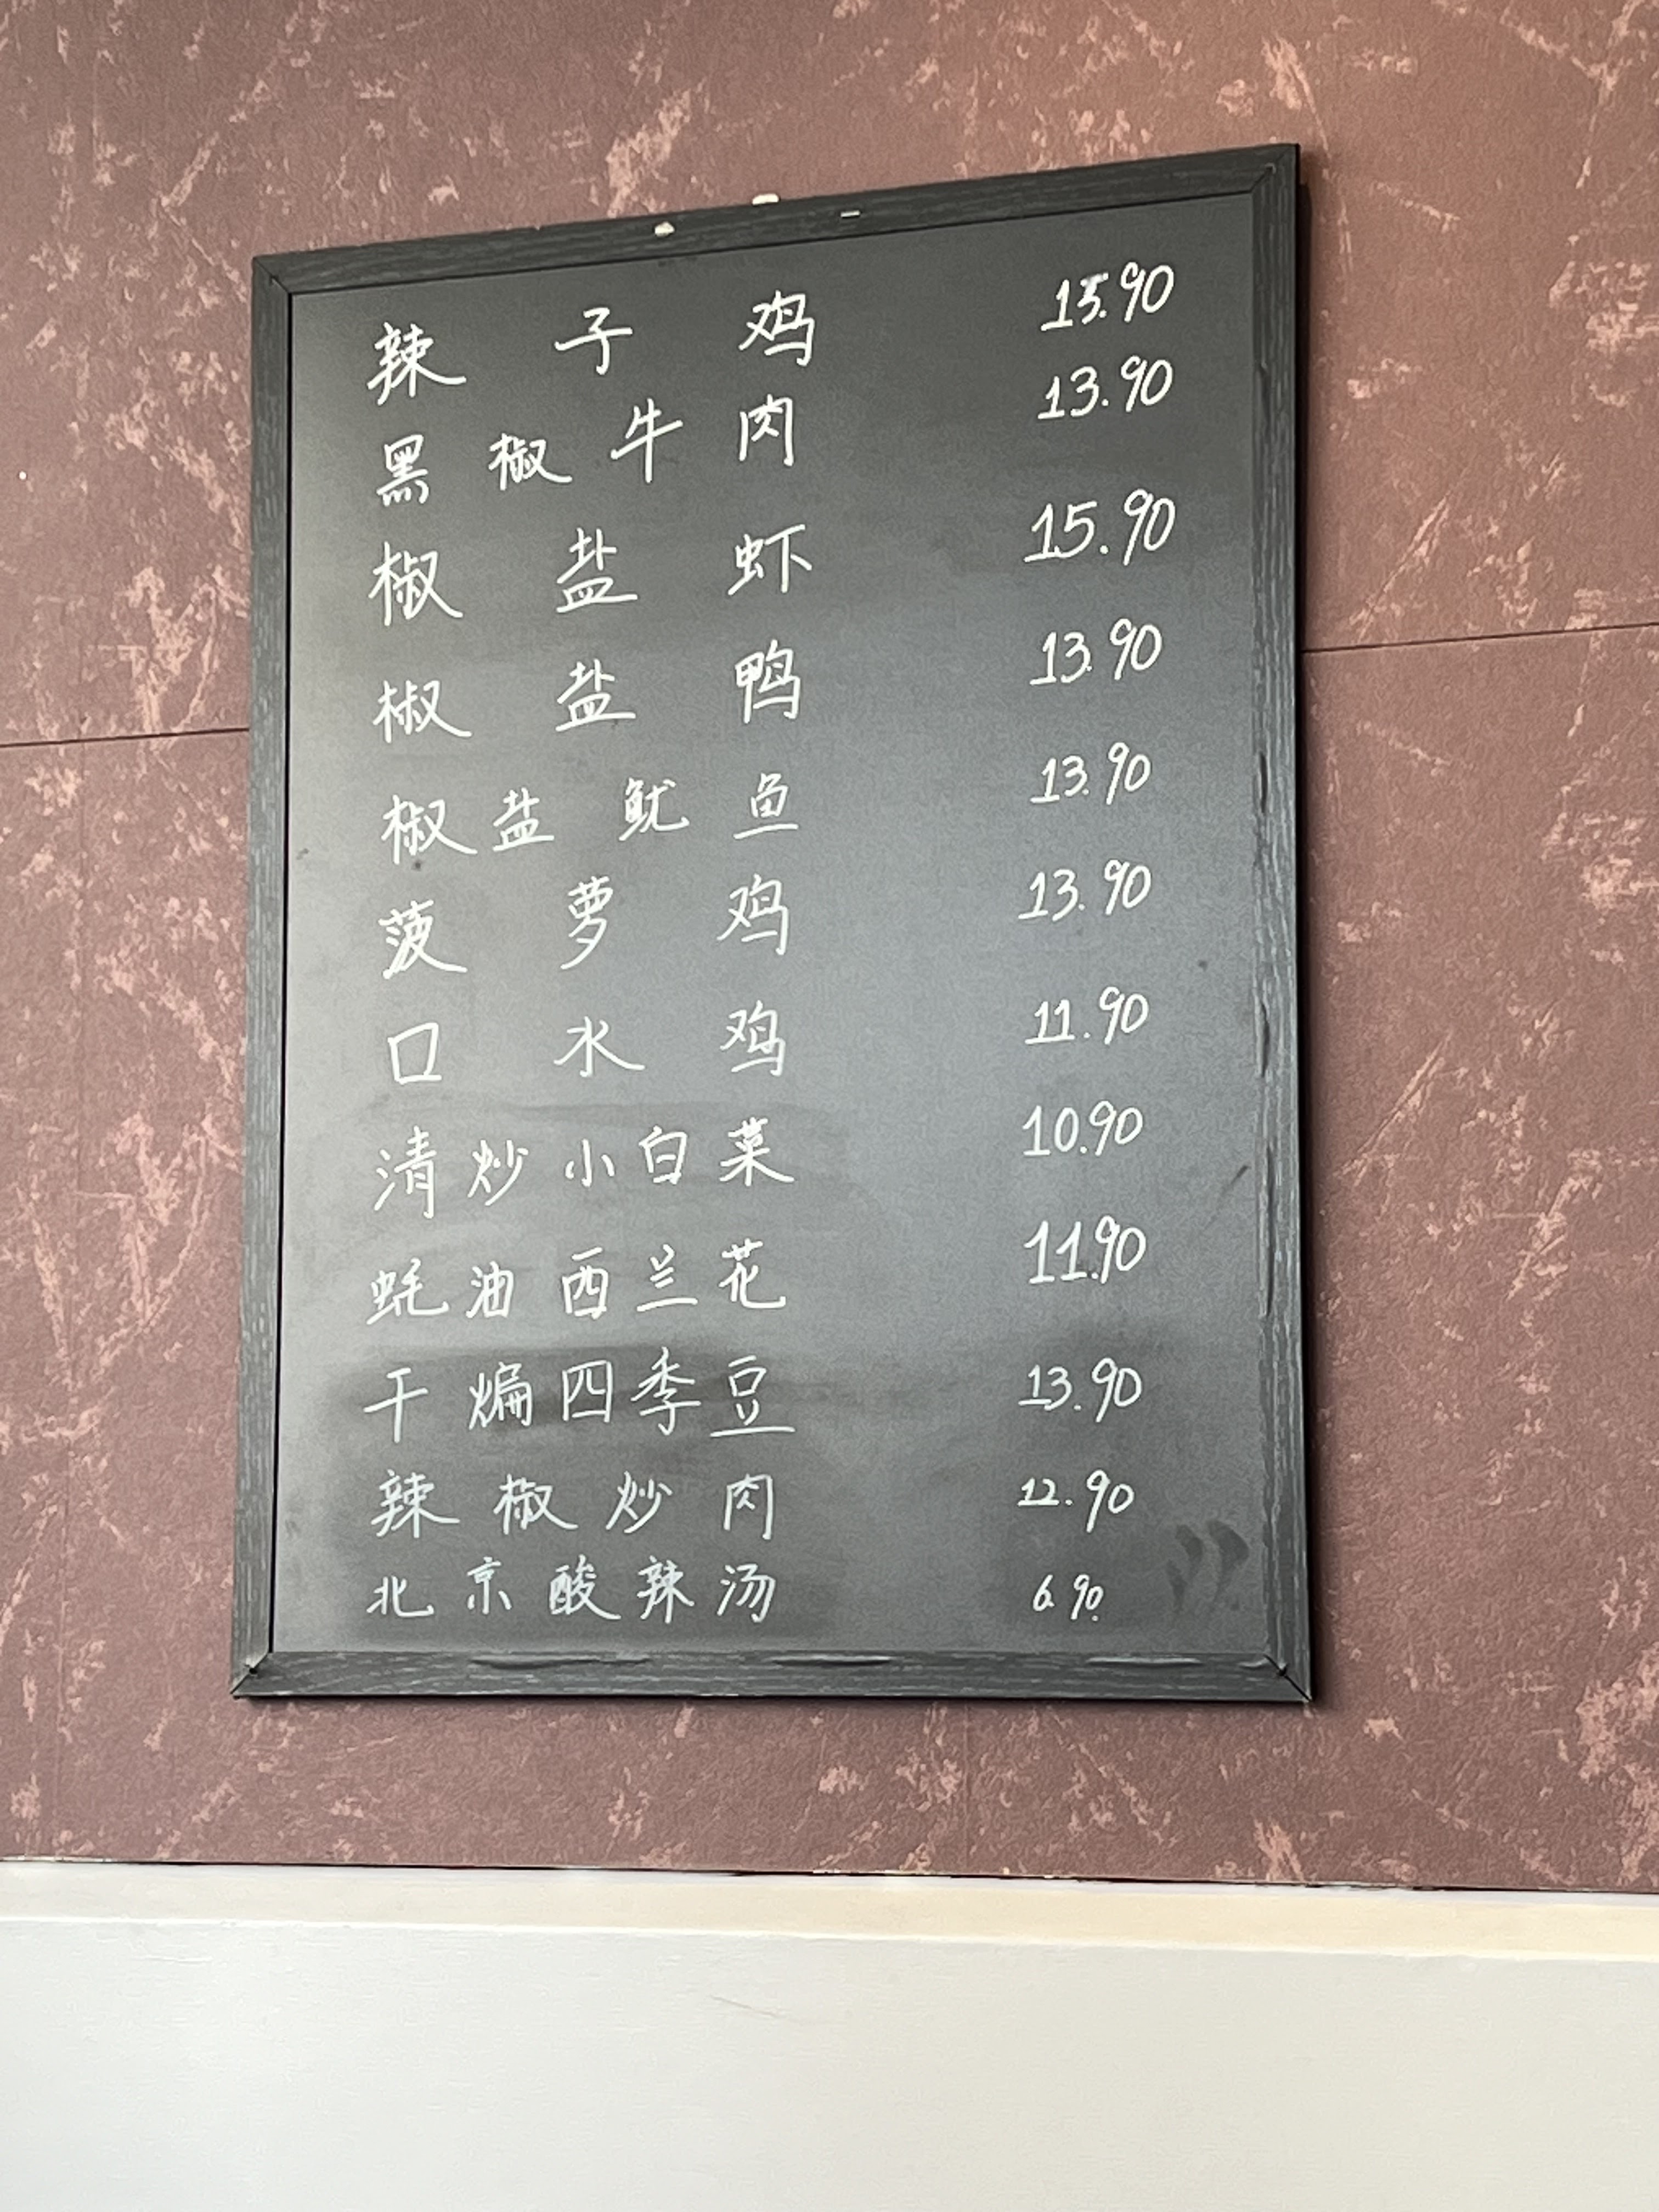 辣子鸡 13.90
黑椒牛肉 13.90
椒盐虾 15.90
椒盐鸭 13.90
椒盐鱿鱼 13.90
菠萝鸡 13.90
口水鸡 11.90
清炒小白菜 10.90
蚝油西兰花 11.90
干煸四季豆 13.90
辣椒炒肉 12.90
北京酸辣汤 6.90